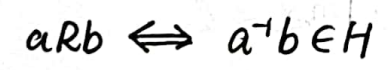 aRb ⟺ a⁻¹b ∈ H